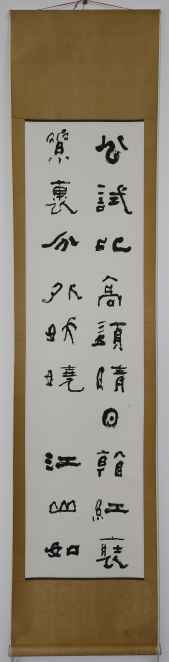 公試比高須晴日看紅裝
素裹分外妖嬈江山如